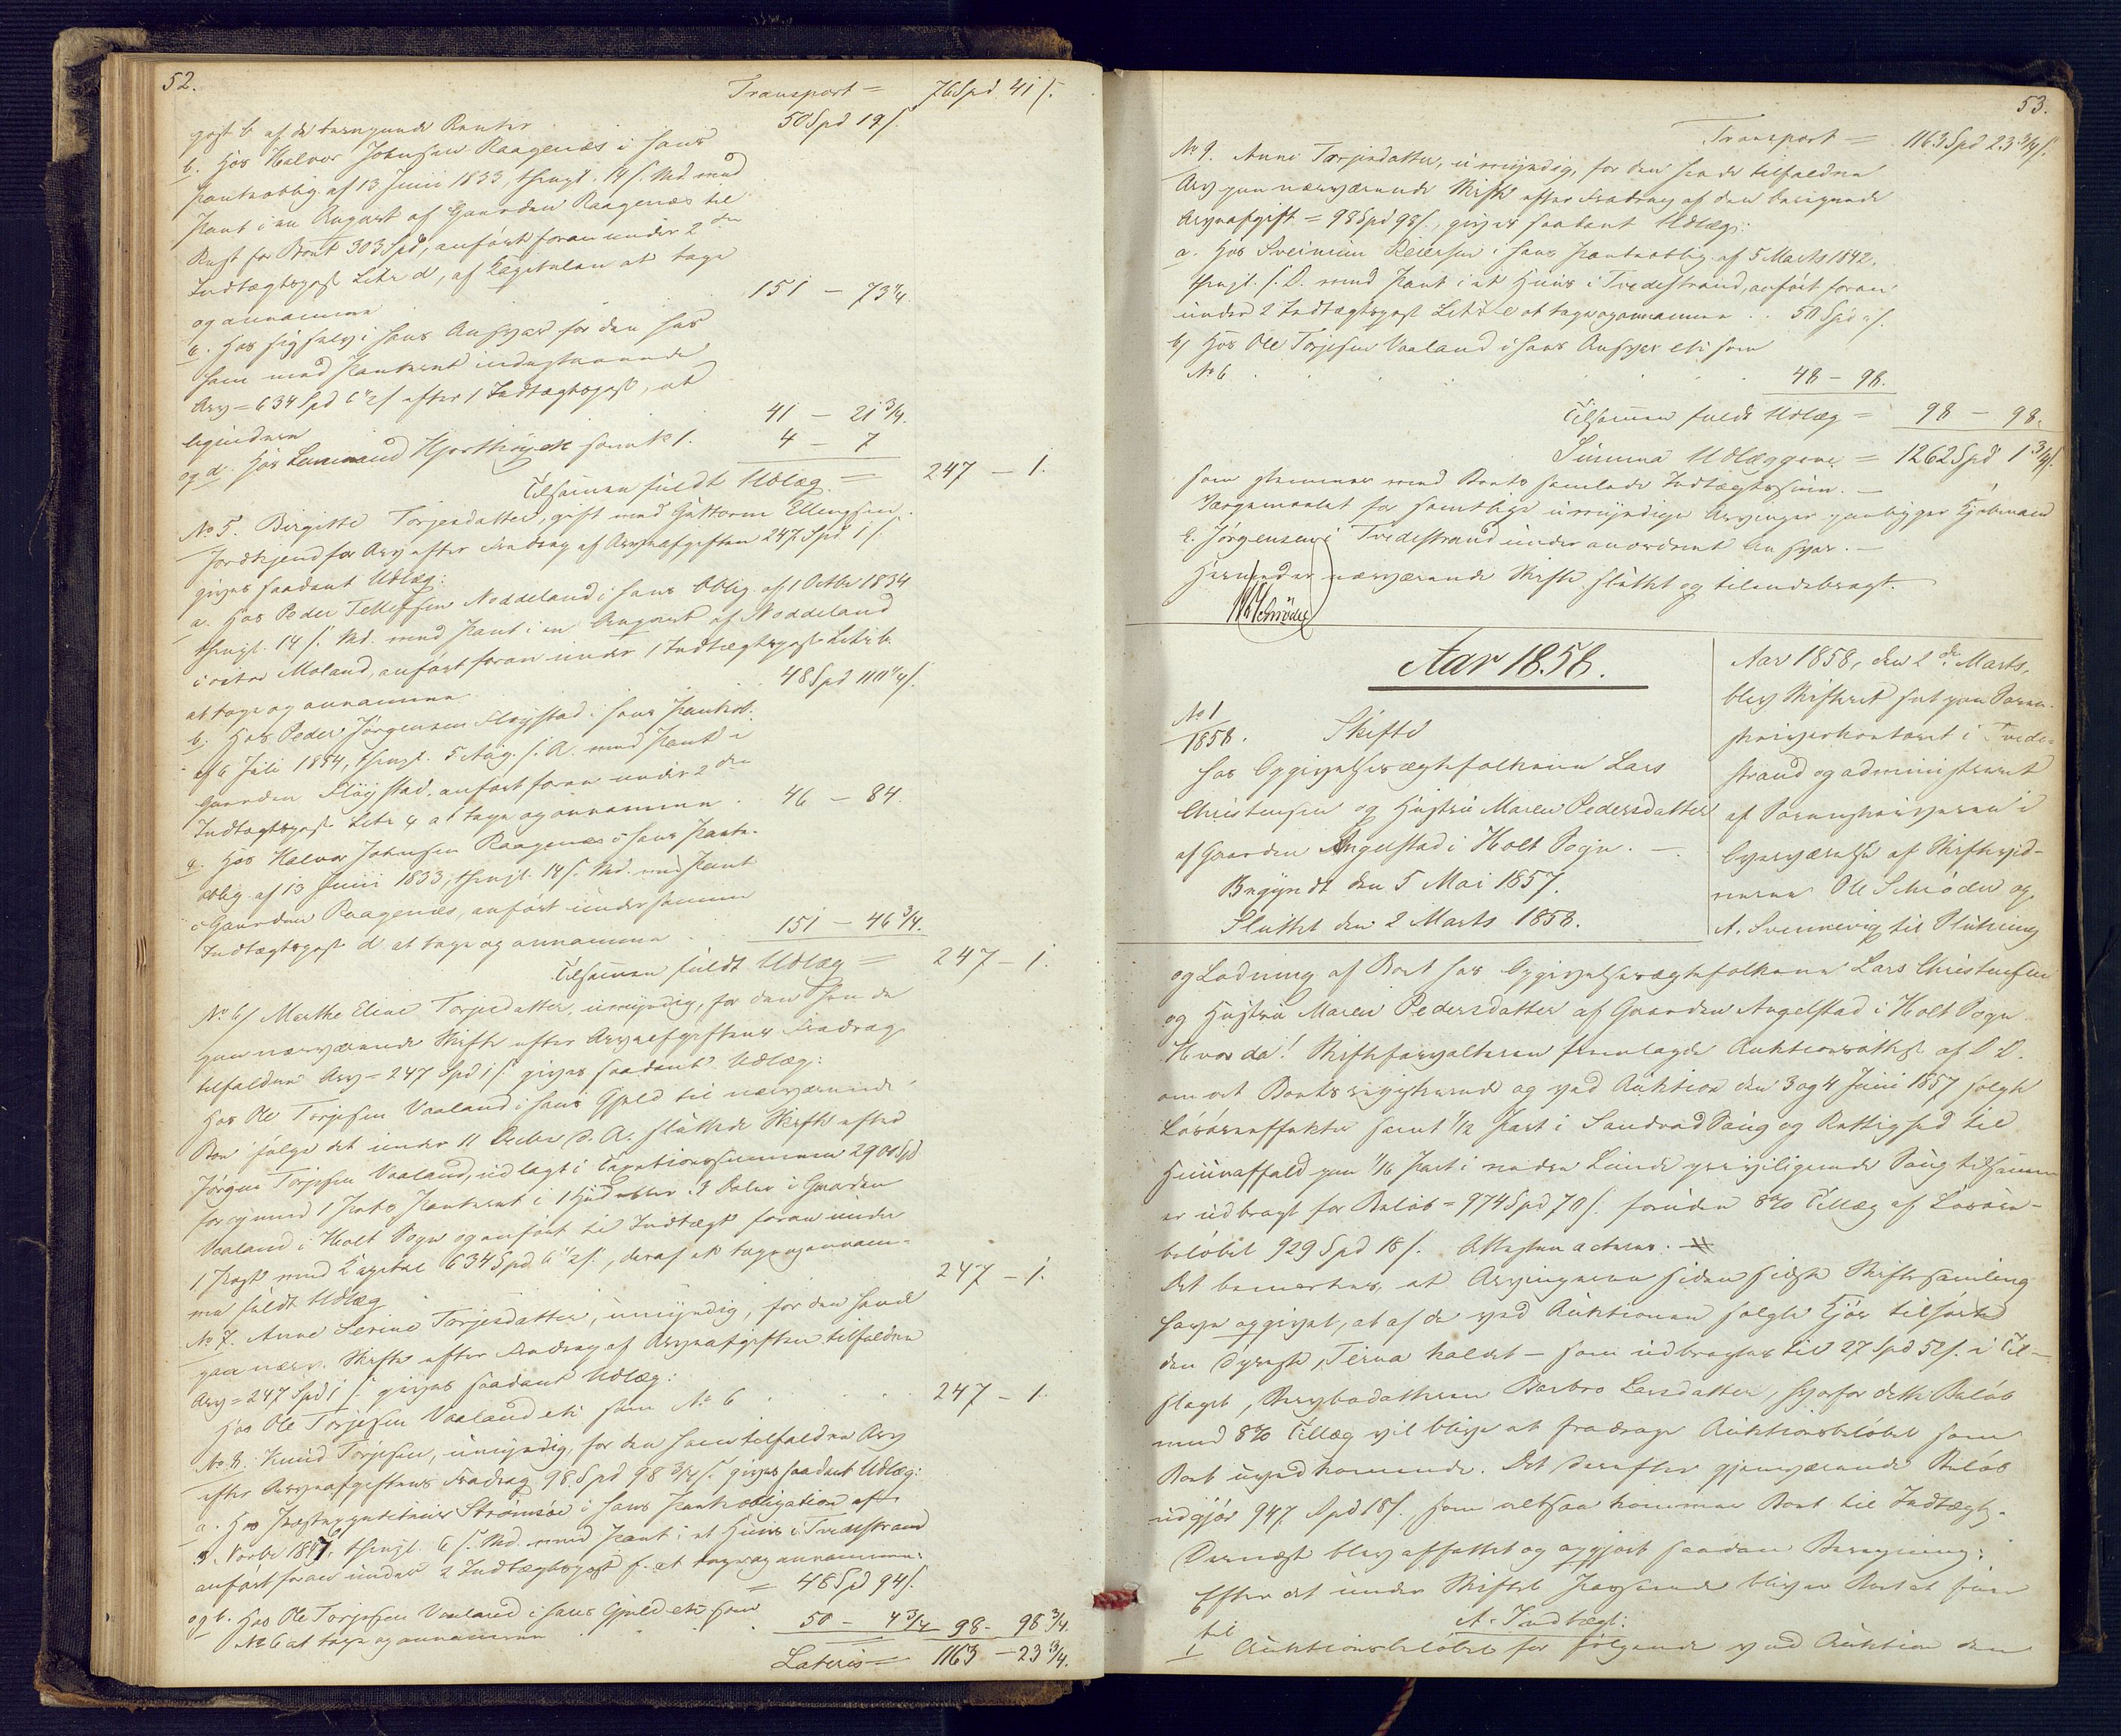 52.
Transport = 76 Spd 41 s.
post b af de beregnede Renter 50 Spd 19 s.
b. Hos Halvor Johnsen Raagenæs i hans
Pantoblig. af 13 Juni 1833, thingl. 14 s. Md. med
Pant i en Anpart af Gaarden Raagenæs til
Rest for Boet 303 Spd, anført foran under 2den
Indtægtspost Litr d, af Kapitalen at tage
og annamme 151 - 73 1/4.
c. Hos sig selv i hans Ansvar for den hos
ham med Panteret indestaaende
Arv = 634 Spd 6 1/2 s efter 1 Indtægtspost, at
ligeledes 41 - 21 3/4.
og d. Hos Lensmand Hjorthsyck som No 1. 4 - 7
Tilsammen fuldt Udlæg = 247 - 1.
No 5. Birgitte Torjesdatter, gift med Guttorm Ellingsen
Jordkjend for Arv efter Fradrag af Arveafgiften 247 Spd 1 s.
gives saadant Udlæg:
a. Hos Peder Tellefsen Noddeland i hans Oblig. af 1 Octbr 1834
thingl. 14 s. Md. med Pant i en Anpart af Noddeland
i østre Moland, anført foran under 1 Indtægtspost Litr b.
at tage og annamme 48 Spd s.
b. Hos Peder Jørgensen Fløystad i hans Pantobl.
af 6 Juli 1854, thingl. 5 Aug. s. A. med Pant i
Gaarden Fløystad, anført foran under 2den
Indtægtspost Litr at tage og annamme . 46 - 84.
c. Hos Halvor Johnsen Raagenæs i hans Pant-
oblig. af 13 Juni 1833, thingl. 14 s. Md. med Pant
i Gaarden Raagenæs, anført under samme
Indtægtspost d at tage og annamme 151 - 46 3/4.
Tilsammen fuldt Udlæg = 247 - 1.
No 6/ Marthe Eline Torjesdatter, umyndig, for den hende
paa nærværende Skifte efter Arveafgiftens Fradrag
tilfaldne Arv = 247 Spd 1 s. gives saadant Udlæg:
Hos Ole Torjesen Vaaland i hans Gjæld til nærværende
Boe ifølge det under 11 Decbr s. A. sluttede Skifte efter
Jørgen Torjesen Vaaland, udlagt i Taxationssummen 2900 Spd
for og med 1 Pets Panteret i 1 Hud i Gaarden
Vaaland i Holt Sogn og anført til Indtægt foran under
1 Post med Kapital 634 Spd 6 1/2 s., deraf at tage og annam-
me fuldt Udlæg 247 - 1.
No 7. Anne Serine Torjesdatter, umyndig, for den hende
paa nærv. Skifte efter Fradrag af Arveafgiften tilfaldne
Arv = 247 Spd 1 s. gives saadant Udlæg:
Hos Ole Torjesen Vaaland etc som No 6 . . 247 - 1.
No 8. Knud Torjesen, umyndig, for den ham tilfaldne Arv
efter Arveafgiftens Fradrag 98 Spd 98 3/4 s. gives saadant Udlæg:
a. Hos Strømsøe i hans Pantobligation af
3 Novbr 1847, thingl. 6 s. Md. med Pant i et Huus i Tvedestrand
anført foran under 2 Indtægtspost f. at tage og annamme:
= 48 Spd 94 s.
og b. Hos Ole Torjesen Vaaland i hans Gjæld etc som
No 6 at tage og annamme . . 50 - 4 3/4 98 - 98 3/4.
Lateris = 1163 - 23 3/4.
53.
Transport = 1163 Spd 23 3/4 s.
No 9. Anne Torjesdatter, umyndig, for den hende tilfaldne
Arv paa nærværende Skifte efter Fradrag af den beregnede
Arveafgift = 98 Spd 98 s., gives saadant Udlæg:
a. Hos Sveinum Reiersen i hans Pantoblig. af 5 Marts 1842,
thingl. s. D. med Pant i et Huus i Tvedestrand, anført foran
under 2 Indtægtspost Litr e at tage og annamme . . 50 Spd " s.
b/ Hos Ole Torjesen Vaaland i hans Ansvar etc som
No 6 . . . . . 48 - 98.
Tilsammen fuldt Udlæg = 98 - 98.
Summa Udlæggene = 1262 Spd 1 3/4 s.
som stemmer med Boets samlede Indtægtssum. -
Værgemaalet for samtlige umyndige Arvinger paaligger Kjøbmand
E. Jørgensen i Tvedestrand under anordnet Ansvar. -
Hermed er nærværende Skifte sluttet og tilendebragt.
Aar 1858.
No 1
1858.
Skifte
hos Opgivelsesægtefolkene Lars
Christensen og Hustru Maren Pedersdatter
af Gaarden Angelstad i Holt Sogn. -
Begyndt den 5 Mai 1857.
Sluttet den 2 Marts 1858.
Aar 1858, den 2den Marts,
blev Skifteret sat paa Soren-
skriverkontoret i Tvede-
strand og administreret
af Sorenskriveren i
Overværelse af Skiftevid-
nerne Ole Schrøder og
A. Svennevig til Slutning
og Lodning af Boet hos Opgivelsesægtefolkene Lars Christensen
og Hustru Maren Pedersdatter af Gaarden Angelstad i Holt Sogn.
Hvor da! Skifteforvalteren fremlagde Auktionsattest af D. D.
om at Boets registrerede og ved Auktion den 3 og 4 Juni 1857 solgte
Løsøreeffekter samt 1/12 Part i Sandvad Saug og Rettighed til
Huunaffald paa 1/16 Part i nedre Lunde Saug tilsammen
er udbragt for Beløb = 974 Spd 70 s. foruden 8% Tillæg af Løsøre-
beløbet 929 Spd 18 s. Attesten acteres.
Det bemærkes, at Arvingerne siden sidste Skiftesamling
have opgivet, at af de ved Auktionen solgte Kjør tilhørte
den dyreste, Terna kaldet - som udbragtes til 27 Spd 52 s. i Til-
slaget, Barbro Larsdatter, hvorfor dette Beløb
med 8% Tillæg vil blive at fradrage Auktionsbeløbet som
Boet uvedkommende. Det derefter gjenværende Beløb
udgjør 947 Spd 18 s., som altsaa kommer Boet til Indtægt.
Dernæst blev affattet og opgjort saadan Beregning:
Efter det under Skiftet Passerede bliver Boet at føre
til
A. Indtægt:
1 Auktionsbeløbet for følgende ved Auktion den